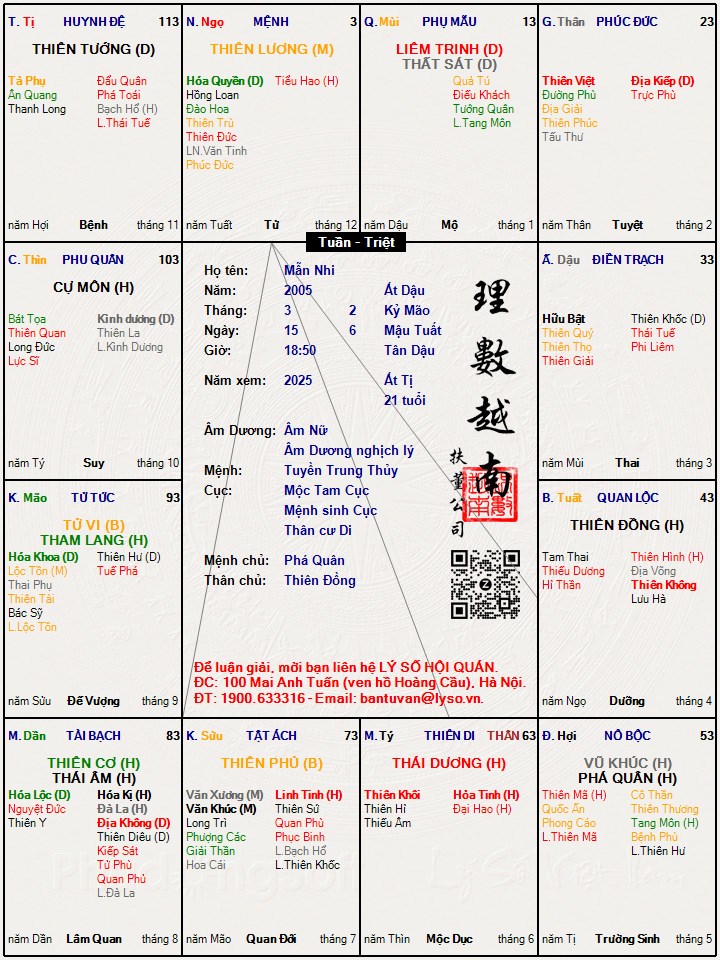 T. Tị HUYNH ĐỆ 113
THIÊN TƯỚNG (D)
Tả Phụ Đẩu Quân
Ân Quang Phá Toái
Thanh Long Bạch Hổ (H)
L.Thái Tuế
năm Hợi Bệnh tháng 11
N. Ngọ MỆNH 3
THIÊN LƯƠNG (M)
Hóa Quyền (D) Tiểu Hao (H)
Hồng Loan
Đào Hoa
Thiên Trù
Thiên Đức
LN.Văn Tinh
Phúc Đức
năm Tuất Tử tháng 12
Q. Mùi PHỤ MẪU 13
LIÊM TRINH (D)
THẤT SÁT (D)
Quả Tú
Điếu Khách
Tướng Quân
L.Tang Môn
năm Dậu Mộ tháng 1
G. Thân PHÚC ĐỨC 23
Thiên Việt Địa Kiếp (D)
Đường Phù Trực Phù
Địa Giải
Thiên Phúc
Tấu Thư
năm Thân Tuyệt tháng 2
Tuần - Triệt
C. Thìn PHU QUÂN 103
CỰ MÔN (H)
Bát Tọa Kình dương (D)
Thiên Quan Thiên La
Long Đức L.Kình Dương
Lực Sĩ
năm Tý Suy tháng 10
Họ tên: Mẫn Nhi
Năm: 2005 Ất Dậu
Tháng: 3 2 Kỷ Mão
Ngày: 15 6 Mậu Tuất
Giờ: 18:50 Tân Dậu
Năm xem: 2025 Ất Tị
21 tuổi
Âm Dương: Âm Nữ
Âm Dương nghịch lý
Mệnh: Tuyền Trung Thủy
Cục: Mộc Tam Cục
Mệnh sinh Cục
Thân cư Di
Mệnh chủ: Phá Quân
Thân chủ: Thiên Đồng
理數越南
扶董公司
Để luận giải, mời bạn liên hệ LÝ SỐ HỘI QUÁN.
ĐC: 100 Mai Anh Tuấn (ven hồ Hoàng Cầu), Hà Nội.
ĐT: 1900.633316 - Email: bantuvan@lyso.vn.
Ấ. Dậu ĐIỀN TRẠCH 33
Hữu Bật Thiên Khốc (D)
Thiên Quý Thái Tuế
Thiên Thọ Phi Liêm
Thiên Giải
năm Mùi Thai tháng 3
K. Mão TỬ TỨC 93
TỬ VI (B)
THAM LANG (H)
Hóa Khoa (D) Thiên Hư (D)
Lộc Tồn (M) Tuế Phá
Thai Phụ
Thiên Tài
Bác Sỹ
L.Lộc Tồn
năm Sửu Đế Vượng tháng 9
B. Tuất QUAN LỘC 43
THIÊN ĐỒNG (H)
Tam Thai Thiên Hình (H)
Thiếu Dương Địa Võng
Hỉ Thần Thiên Không
Lưu Hà
năm Ngọ Dưỡng tháng 4
M. Dần TÀI BẠCH 83
THIÊN CƠ (H)
THÁI ÂM (H)
Hóa Lộc (D) Hóa Kị (H)
Nguyệt Đức Đà La (H)
Thiên Y Địa Không (D)
Thiên Diêu (D)
Kiếp Sát
Tử Phù
Quan Phủ
L.Đà La
năm Dần Lâm Quan tháng 8
K. Sửu TẬT ÁCH 73
THIÊN PHỦ (B)
Văn Xương (M) Linh Tinh (H)
Văn Khúc (M) Thiên Sứ
Long Trì Quan Phù
Phượng Các Phục Binh
Giải Thần L.Bạch Hổ
Hoa Cái L.Thiên Khốc
năm Mão Quan Đới tháng 7
M. Tý THIÊN DI THÂN 63
THÁI DƯƠNG (H)
Thiên Khôi Hỏa Tinh (H)
Thiên Hỉ Đại Hao (H)
Thiếu Âm
năm Thìn Mộc Dục tháng 6
Đ. Hợi NÔ BỘC 53
VŨ KHÚC (H)
PHÁ QUÂN (H)
Thiên Mã (H) Cô Thần
Quốc Ấn Thiên Thương
Phong Cáo Tang Môn (H)
L.Thiên Mã Bệnh Phù
L.Thiên Hư
năm Tị Trường Sinh tháng 5